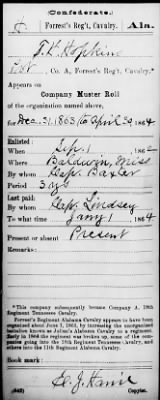 Confederate.
Forrest's Reg't, Cavalry. Ala.
T. H. Hopkins
Pvt, Co. A, Forrest's Reg't, Cavalry.
Appears on
Company Muster Roll
of the organization named above,
for Dec. 31, 1863, to April 30, 1864
Enlisted:
When Sep. 1, 1862
Where Baldwin, Miss
By whom Cap. Baxter
Period 3 yrs
Last paid:
By whom Cap. Lindsey
To what time Jany 1, 1864
Present or absent Present
Remarks:
*This company subsequently became Company A, 18th
Regiment Tennessee Cavalry.
Forrest's Regiment Alabama Cavalry appears to have been
organized about June 1, 1863, by increasing the unorganized
battalion known as Julian's Alabama Cavalry to a regiment.
Early in 1864 the regiment was broken up, some of the com-
panies going into the 18th Regiment Tennessee Cavalry, and
others into the 11th Regiment Alabama Cavalry.
Book mark:
(642)
Copyist.